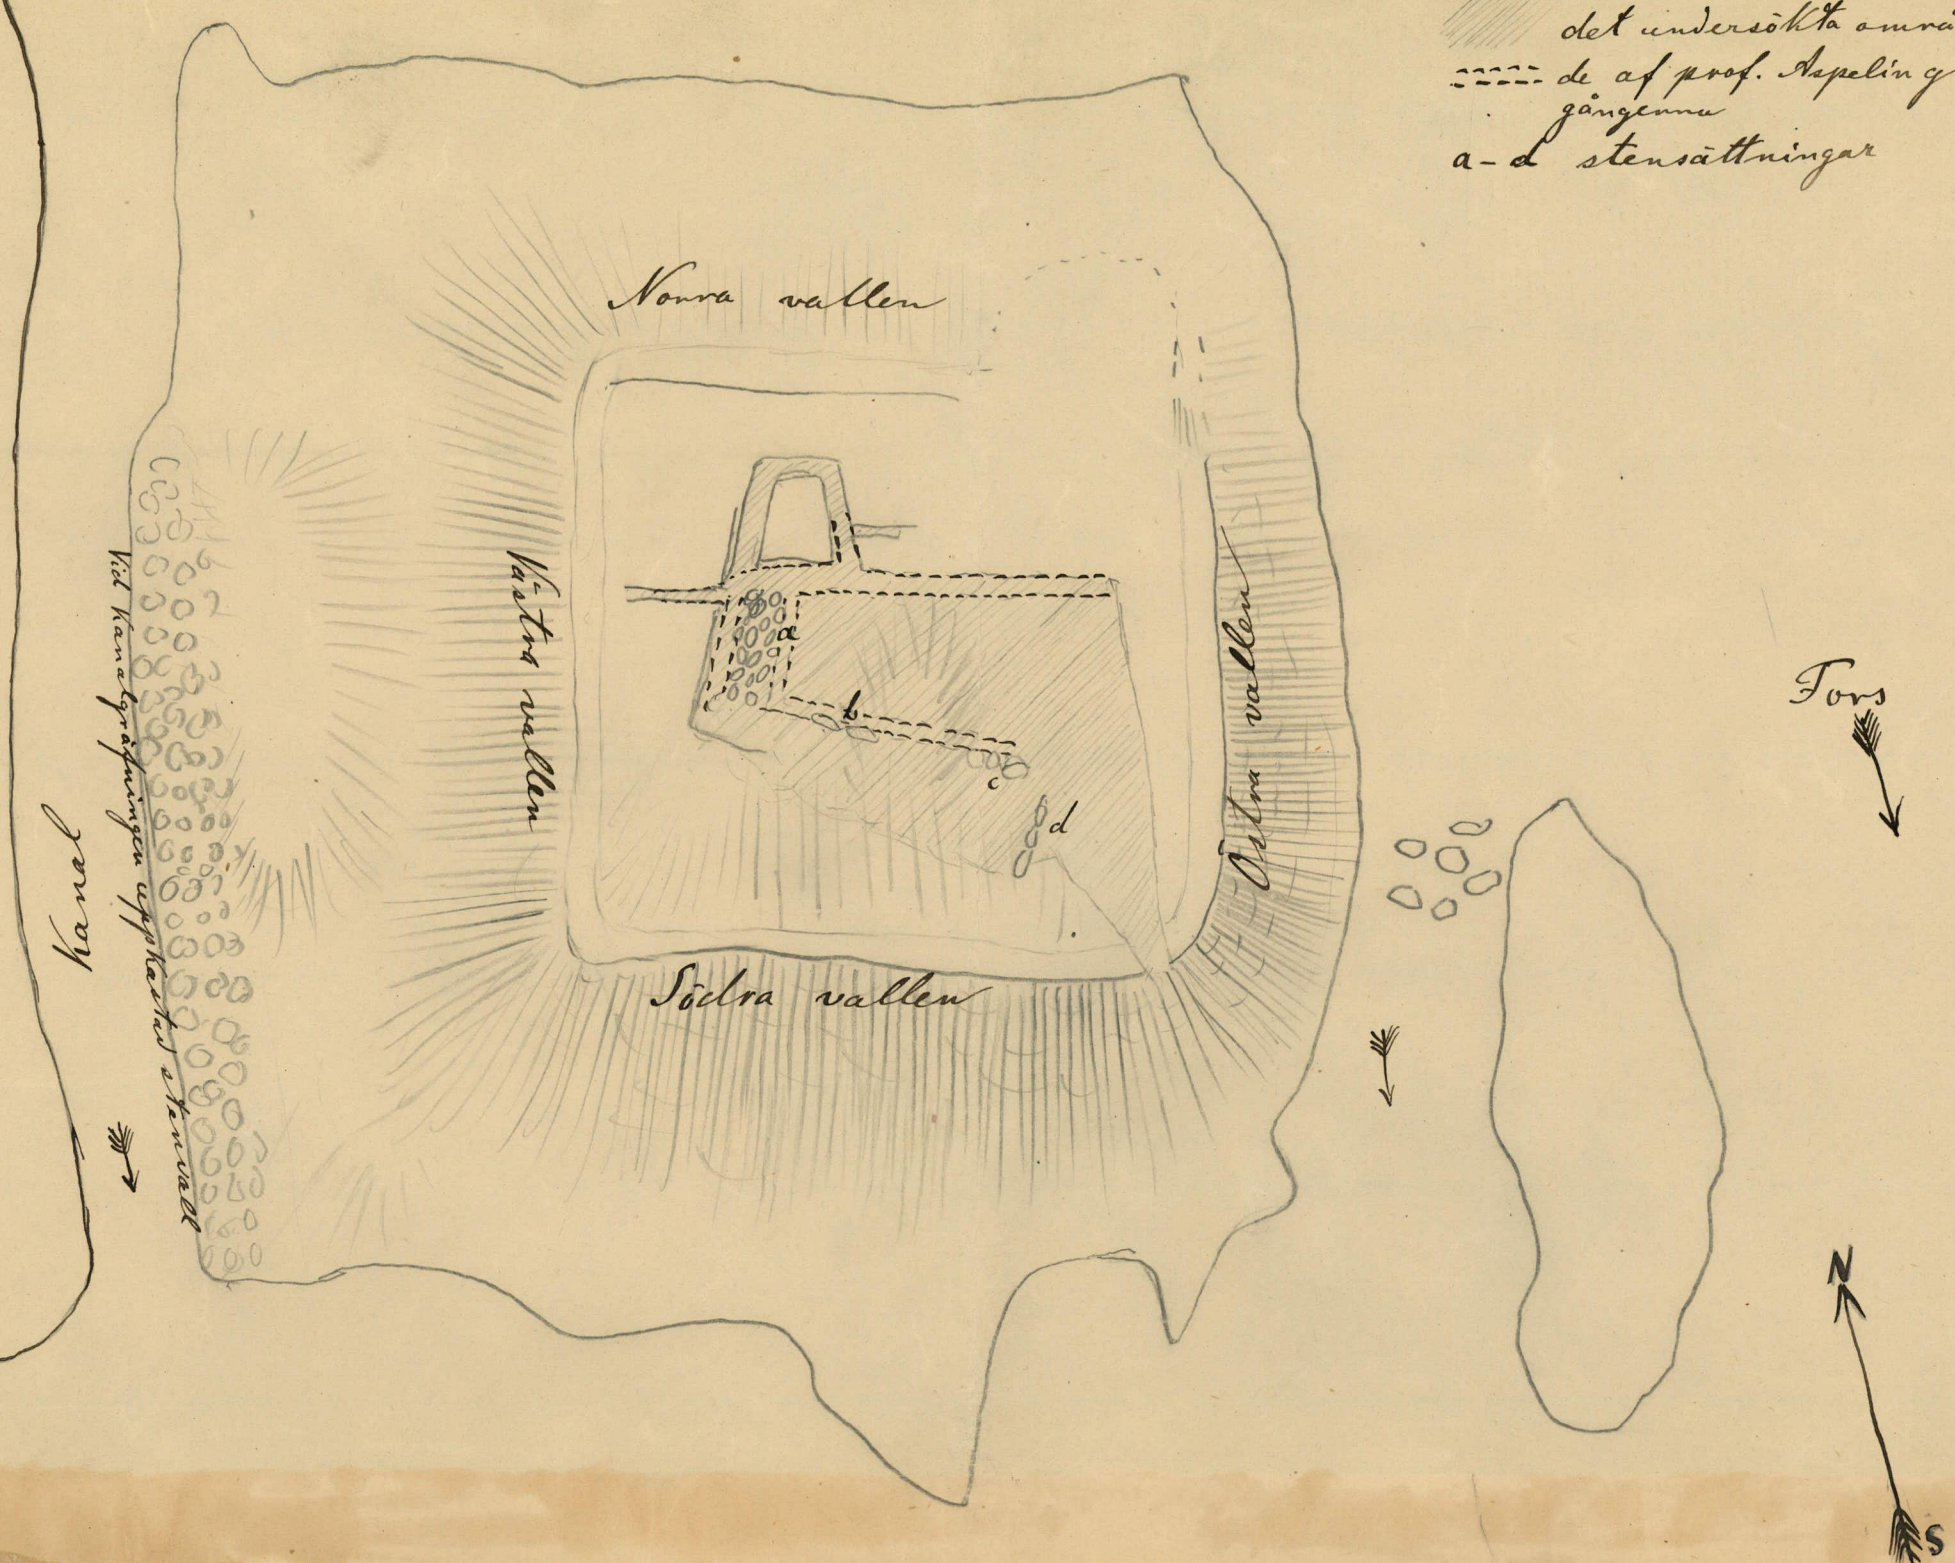 det undersökta områ
de af prof. Aspelin g
gångerna
a-d stensättningar
Norra vallen
Västra vallen
Östra vallen
Södra vallen
a
b
c
d
Kanal
Vid kanalgräfningen uppkastad stenvall
Fors
N
S